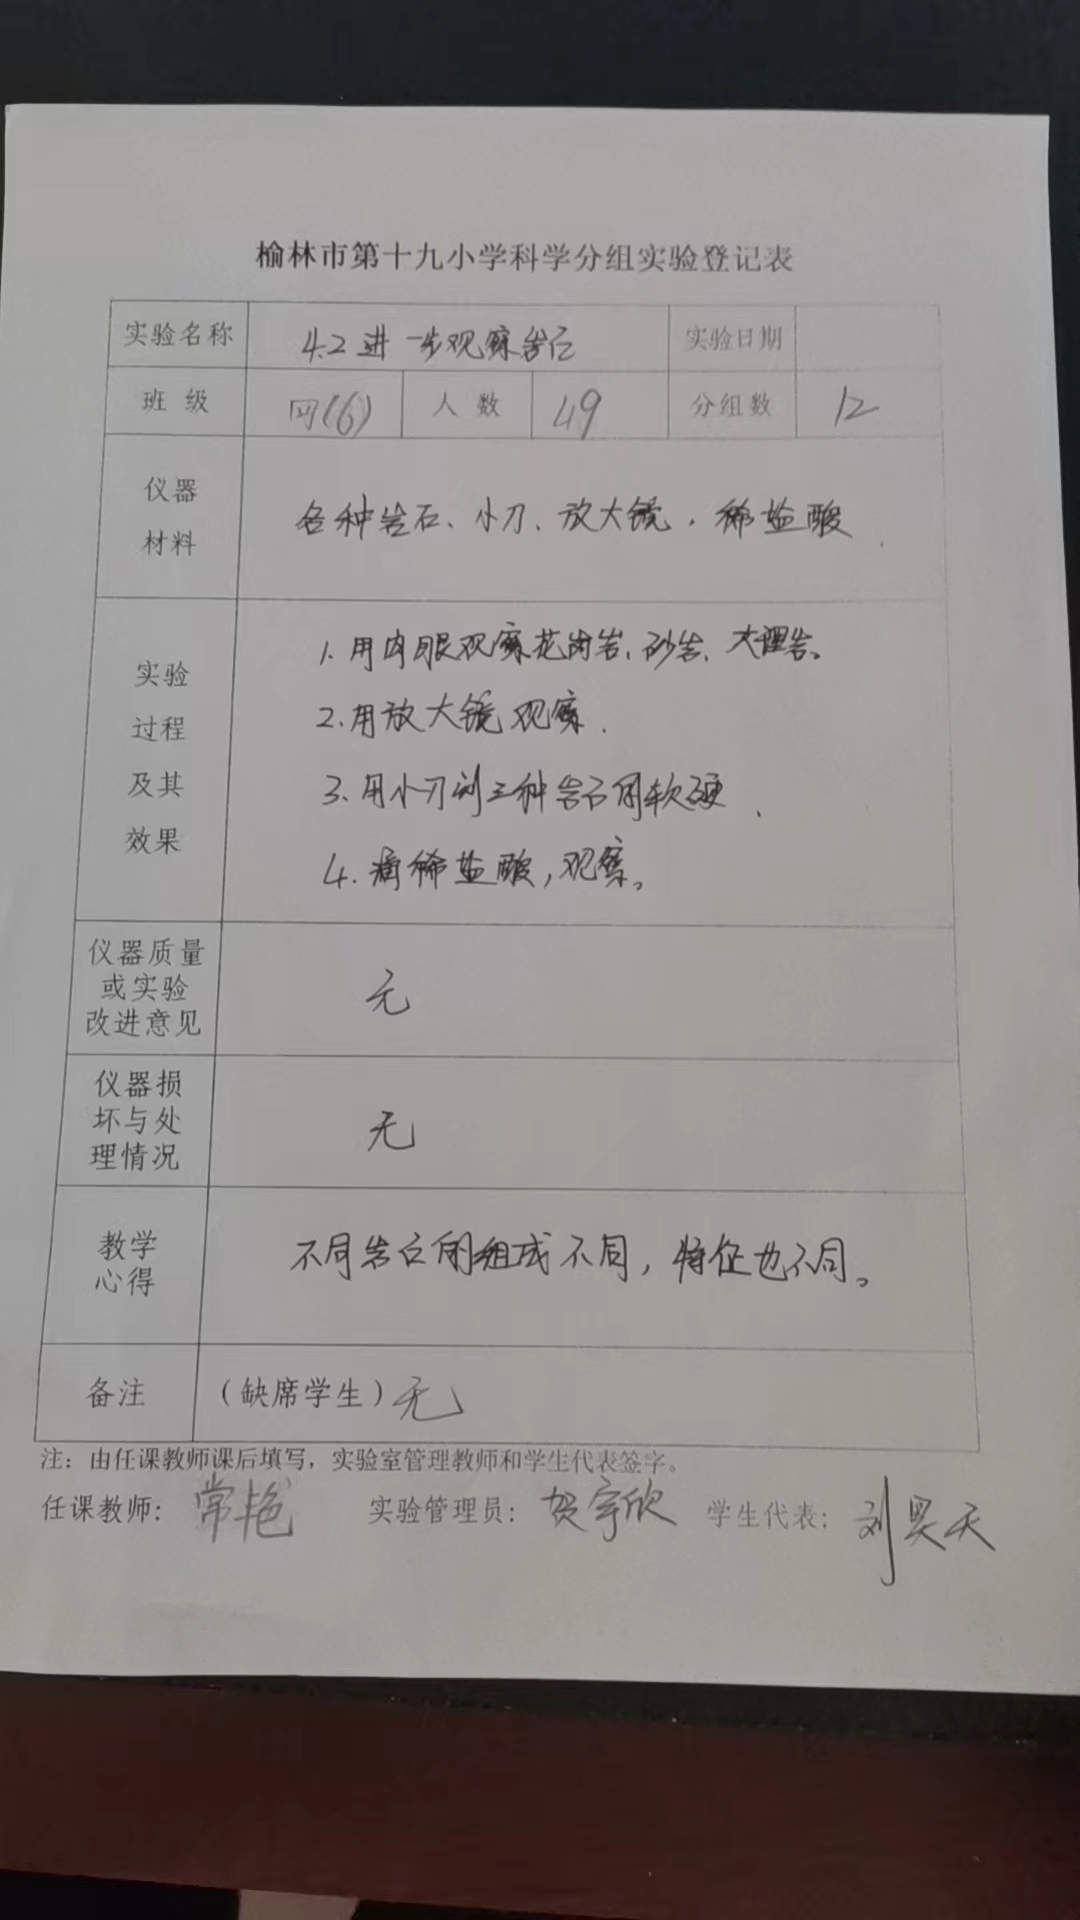 榆林市第十九小学科学分组实验登记表
实验名称 4.2进一步观察岩石 实验日期
班 级 四(6) 人 数 49 分组数 12
仪器
材料
各种岩石、小刀、放大镜,稀盐酸.
实验
过程
及其
效果
1.用肉眼观察花岗岩、砂岩、大理岩。
2.用放大镜观察.
3.用小刀刻三种岩石的软硬.
4.滴稀盐酸,观察。
仪器质量
或实验
改进意见
无
仪器损
坏与处
理情况
无
教学
心得
不同岩石的组成不同,特征也不同。
备注 (缺席学生)无
注:由任课教师课后填写,实验室管理教师和学生代表签字。
任课教师: 常艳 实验管理员: 贺宇欣 学生代表: 刘昊天